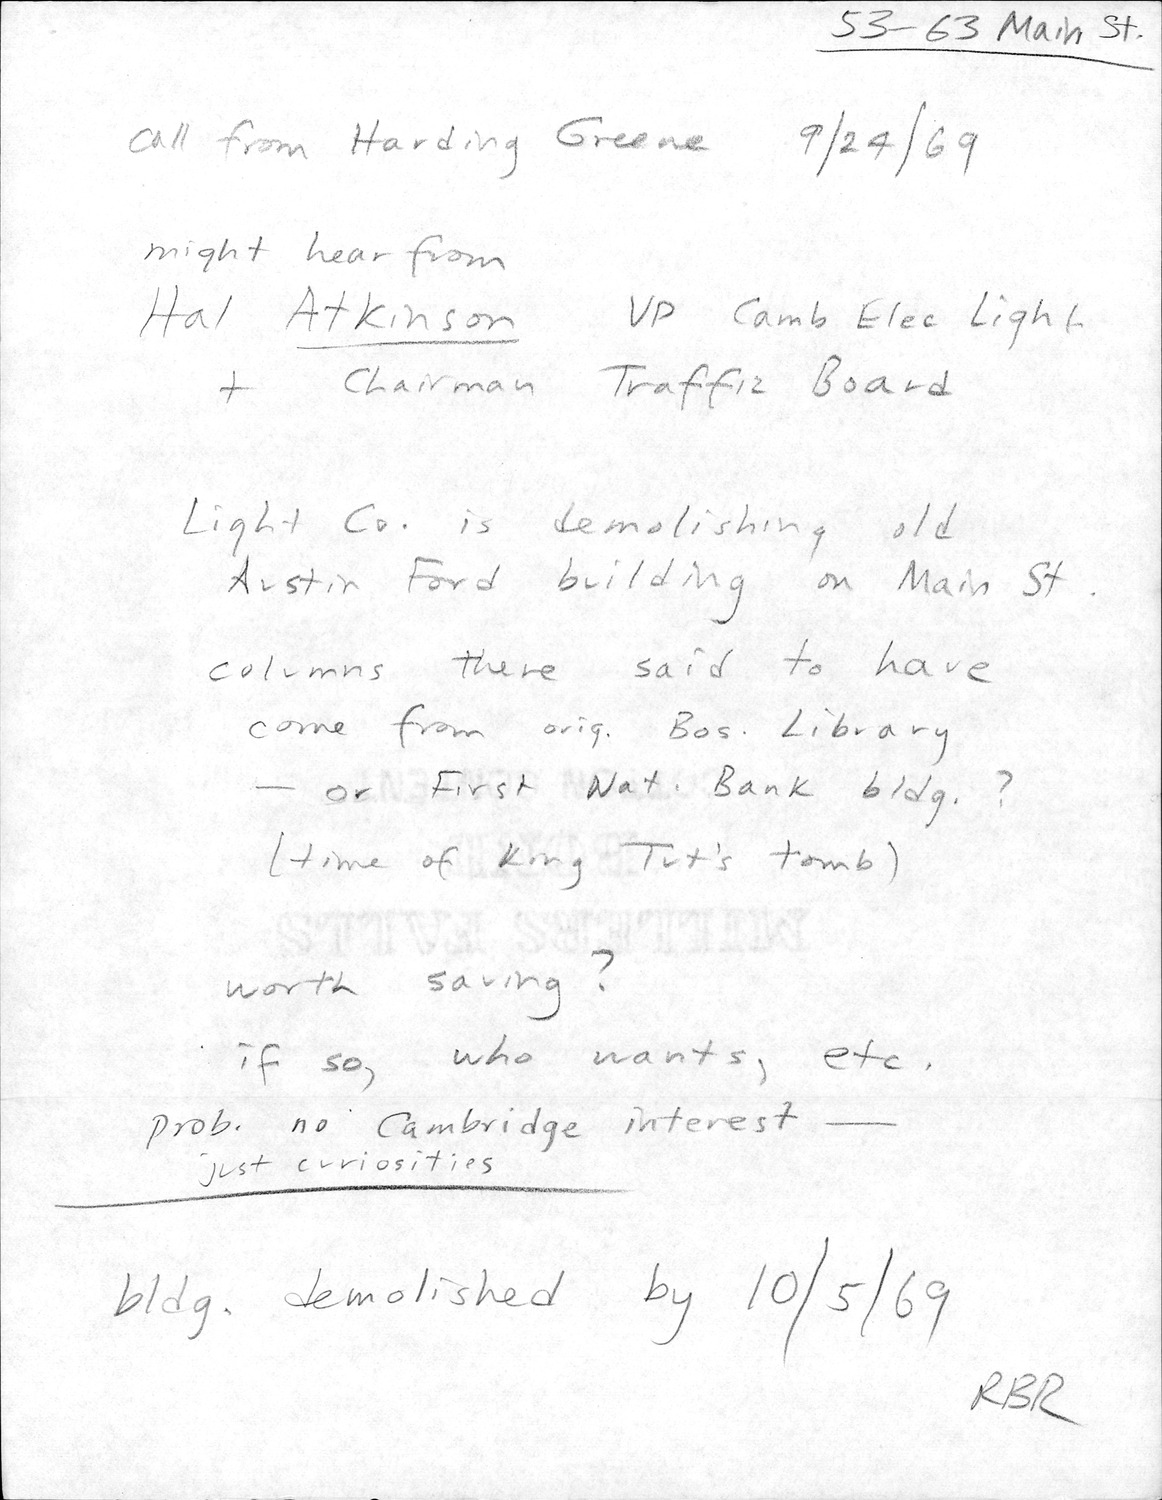 53-63 Main St.
call from Harding Greene 9/24/69
might hear from
Hal Atkinson VP Camb Elec Light
+ Chairman Traffic Board
Light Co. is demolishing old
Austin Ford building on Main St.
columns there said to have
come from orig. Bos. Library
— or First Nat. Bank bldg. ?
(time of King Tut's tomb)
MILLERS FALLS
worth saving?
if so, who wants, etc.
prob. no Cambridge interest —
just curiosities
bldg. demolished by 10/5/69
RBR